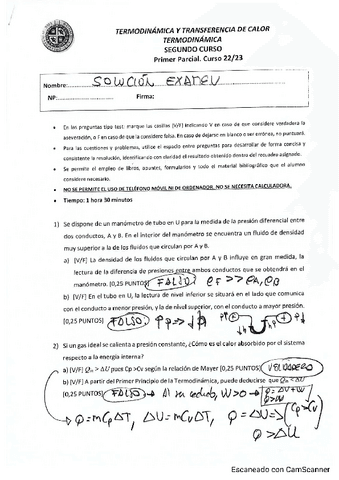 TERMODINÁMICA Y TRANSFERENCIA DE CALOR
TERMODINÁMICA
SEGUNDO CURSO
Primer Parcial. Curso 22/23
Nombre: SOLUCIÓN EXAMEN
Nº: Firma:
• En las preguntas tipo test: marque las casillas (V/F) indicando V en caso de que considere verdadera la
aseveración, o F en caso de que la considere falsa. En caso de dejarse en blanco o ser errónea, no puntuará.
• Para las cuestiones y problemas, utilice el espacio entre preguntas para desarrollar de forma concisa y
consistente la resolución, identificando con claridad el resultado obtenido dentro del recuadro asignado.
• Se permite el empleo de libros, apuntes, formularios y todo el material bibliográfico que el alumno
considere necesario.
• NO SE PERMITE EL USO DE TELÉFONO MÓVIL NI DE ORDENADOR. NO SE NECESITA CALCULADORA.
• Tiempo: 1 hora 30 minutos
1) Se dispone de un manómetro de tubo en U para la medida de la presión diferencial entre
dos conductos, A y B. En el interior del manómetro se encuentra un fluido de densidad
muy superior a la de los fluidos que circulan por A y B.
a) [V/F] La densidad de los fluidos que circulan por A y B influye en gran medida, la
lectura de la diferencia de presiones entre ambos conductos que se obtendrá en el
manómetro. (0,25 PUNTOS) FALSO ρF >> ρA, ρB
b) [V/F] En el tubo en U, la lectura de nivel inferior se situará en el lado que comunica
con el conducto a menor presión, y la de nivel superior, con el conducto a mayor presión.
(0,25 PUNTOS) FALSO
2) Si un gas ideal se calienta a presión constante, ¿Cómo es el calor absorbido por el sistema
respecto a la energía interna?
a) [V/F] Qₐᵦ > ΔU pues Cp >Cv según la relación de Mayer (0,25 PUNTOS) VERDADERO
b) [V/F] A partir del Primer Principio de la Termodinámica, puede deducirse que Q < ΔU
(0,25 PUNTOS) FALSO → W>0 → Q = ΔU + W
Q>W
Q = mCpΔT, ΔU = mCvΔT, Q = ΔU ⇒ Cp > Cv
Q > ΔU
Escaneado con CamScanner